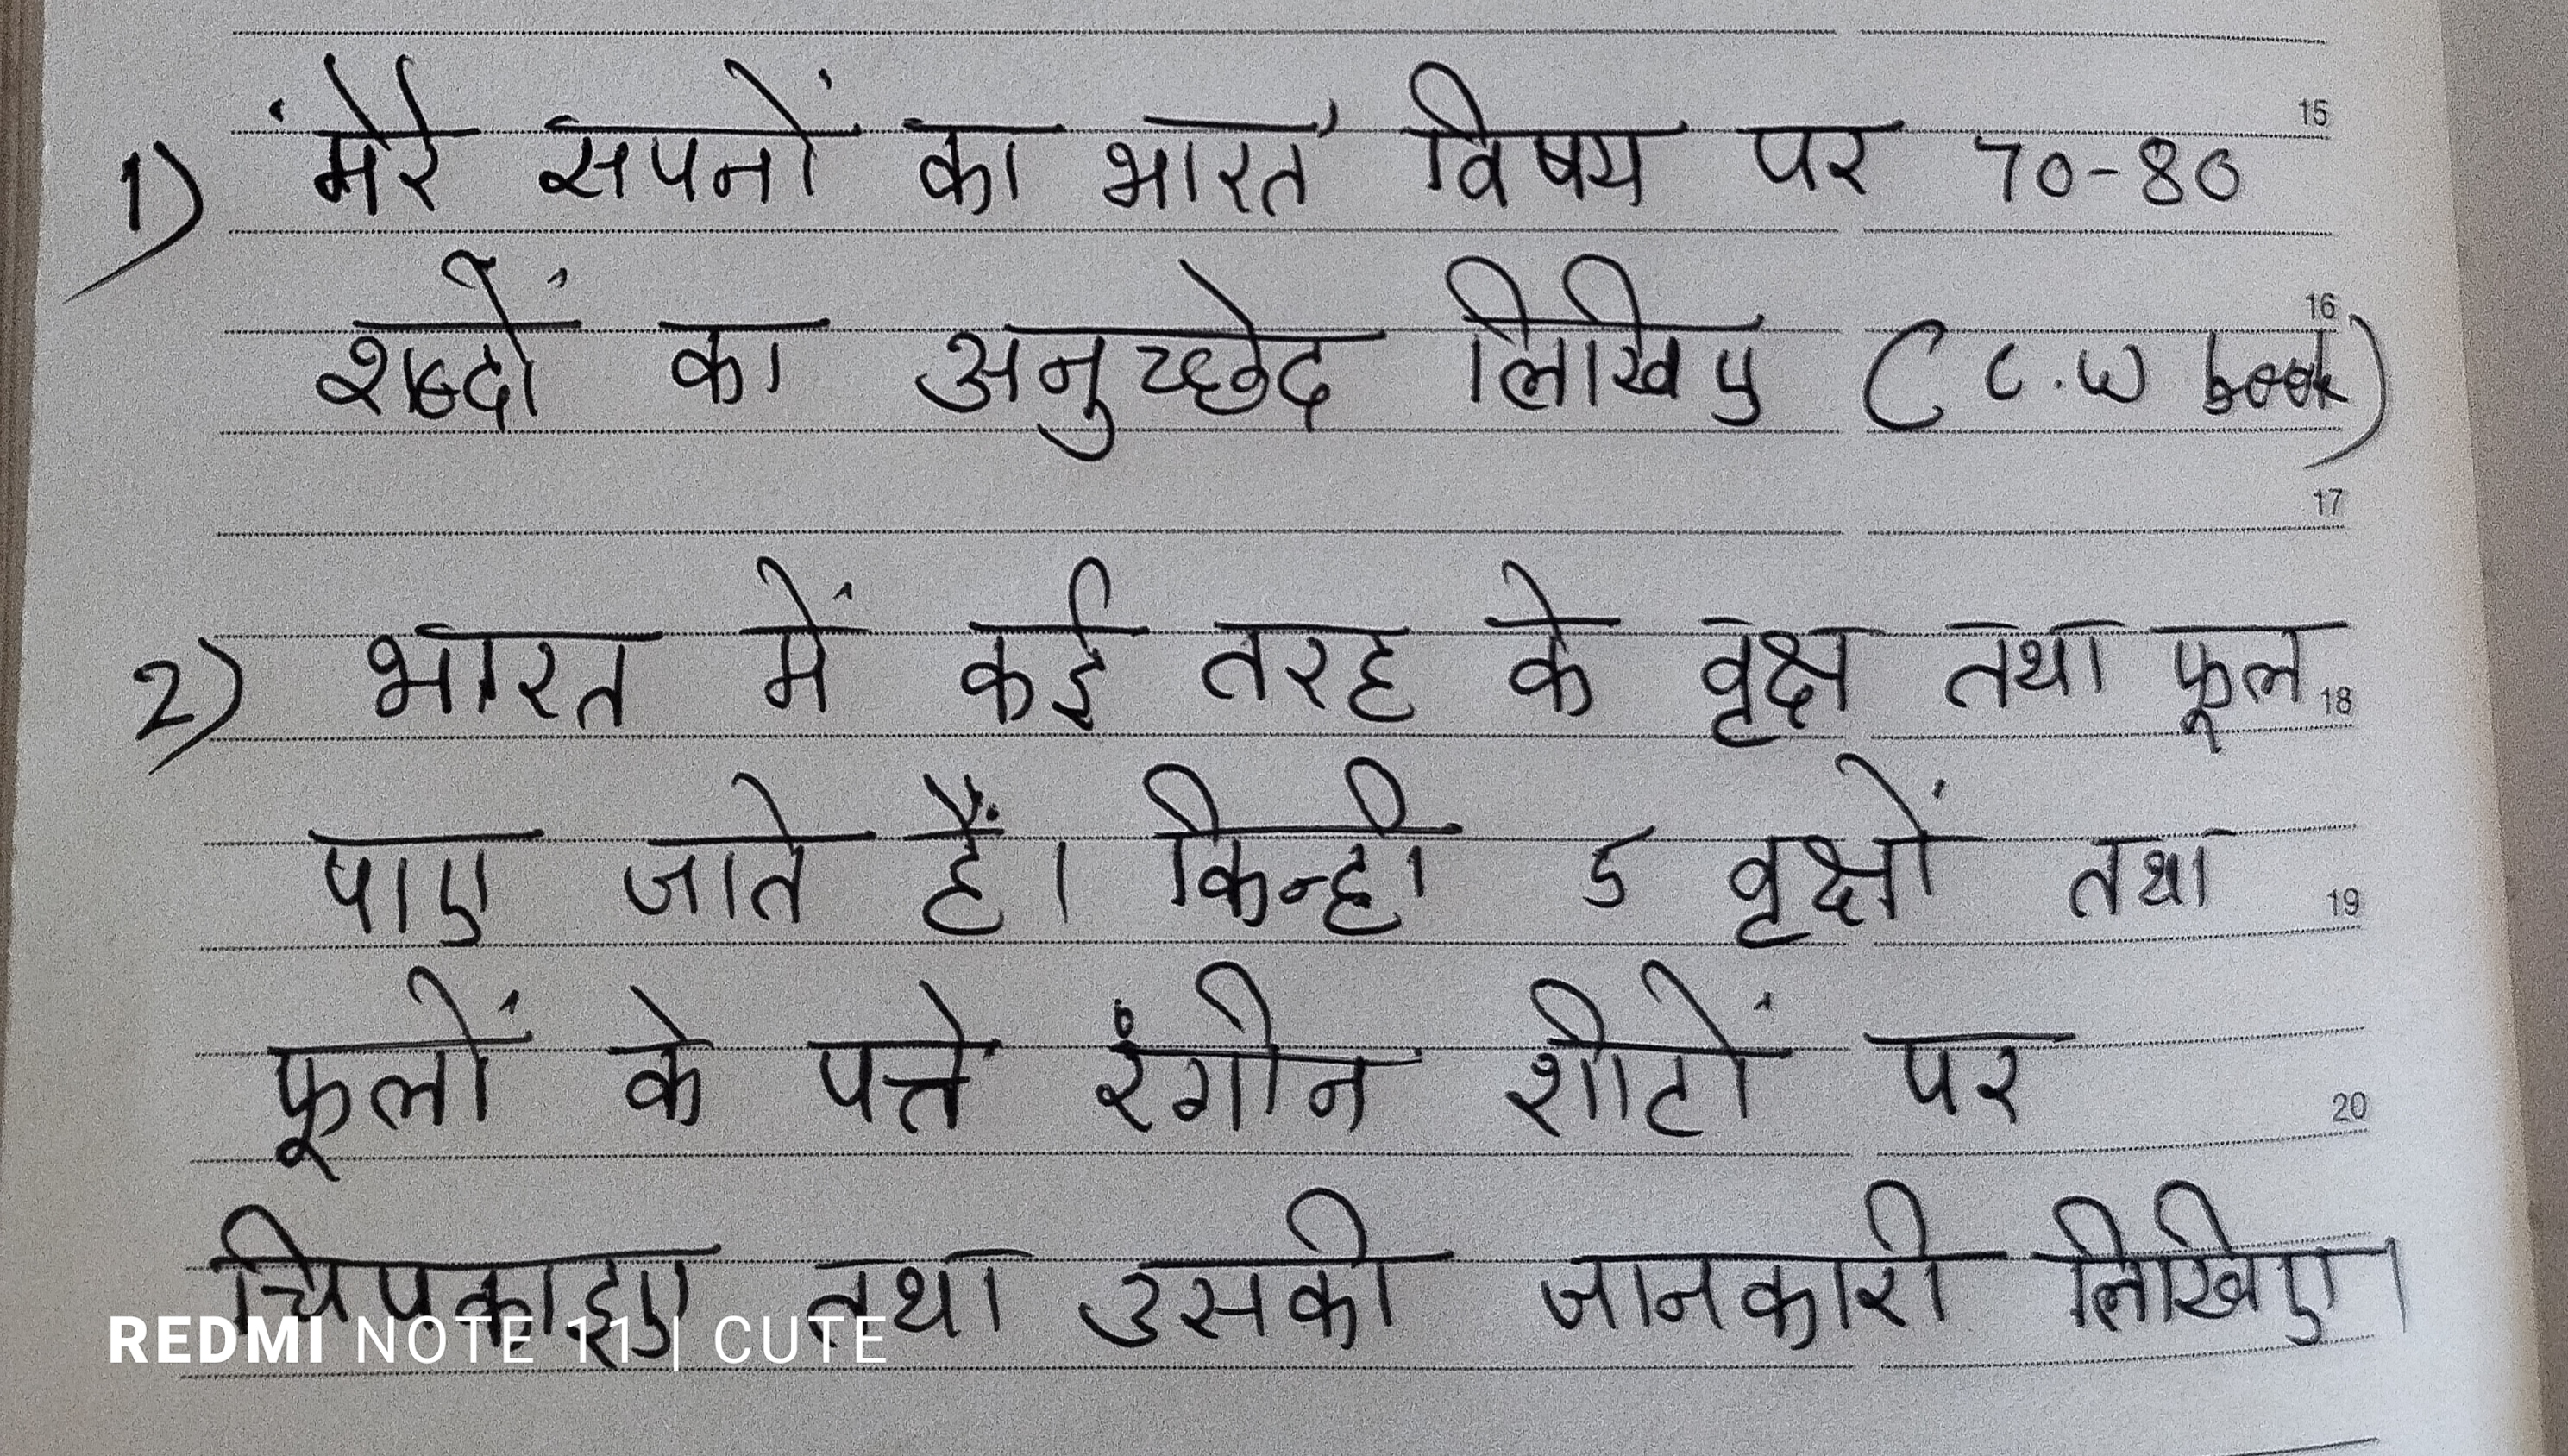 15
1) 'मेरे सपनों का भारत' विषय पर 70-80
16
शब्दों का अनुच्छेद लिखिए (C.W book)
17
2) भारत में कई तरह के वृक्ष तथा फूल
18
पाए जाते हैं। किन्ही 5 वृक्षों तथा
19
फूलों के पत्ते रंगीन शीटों पर
20
चिपकाइए तथा उसकी जानकारी लिखिए।
REDMI NOTE 11 | CUTE